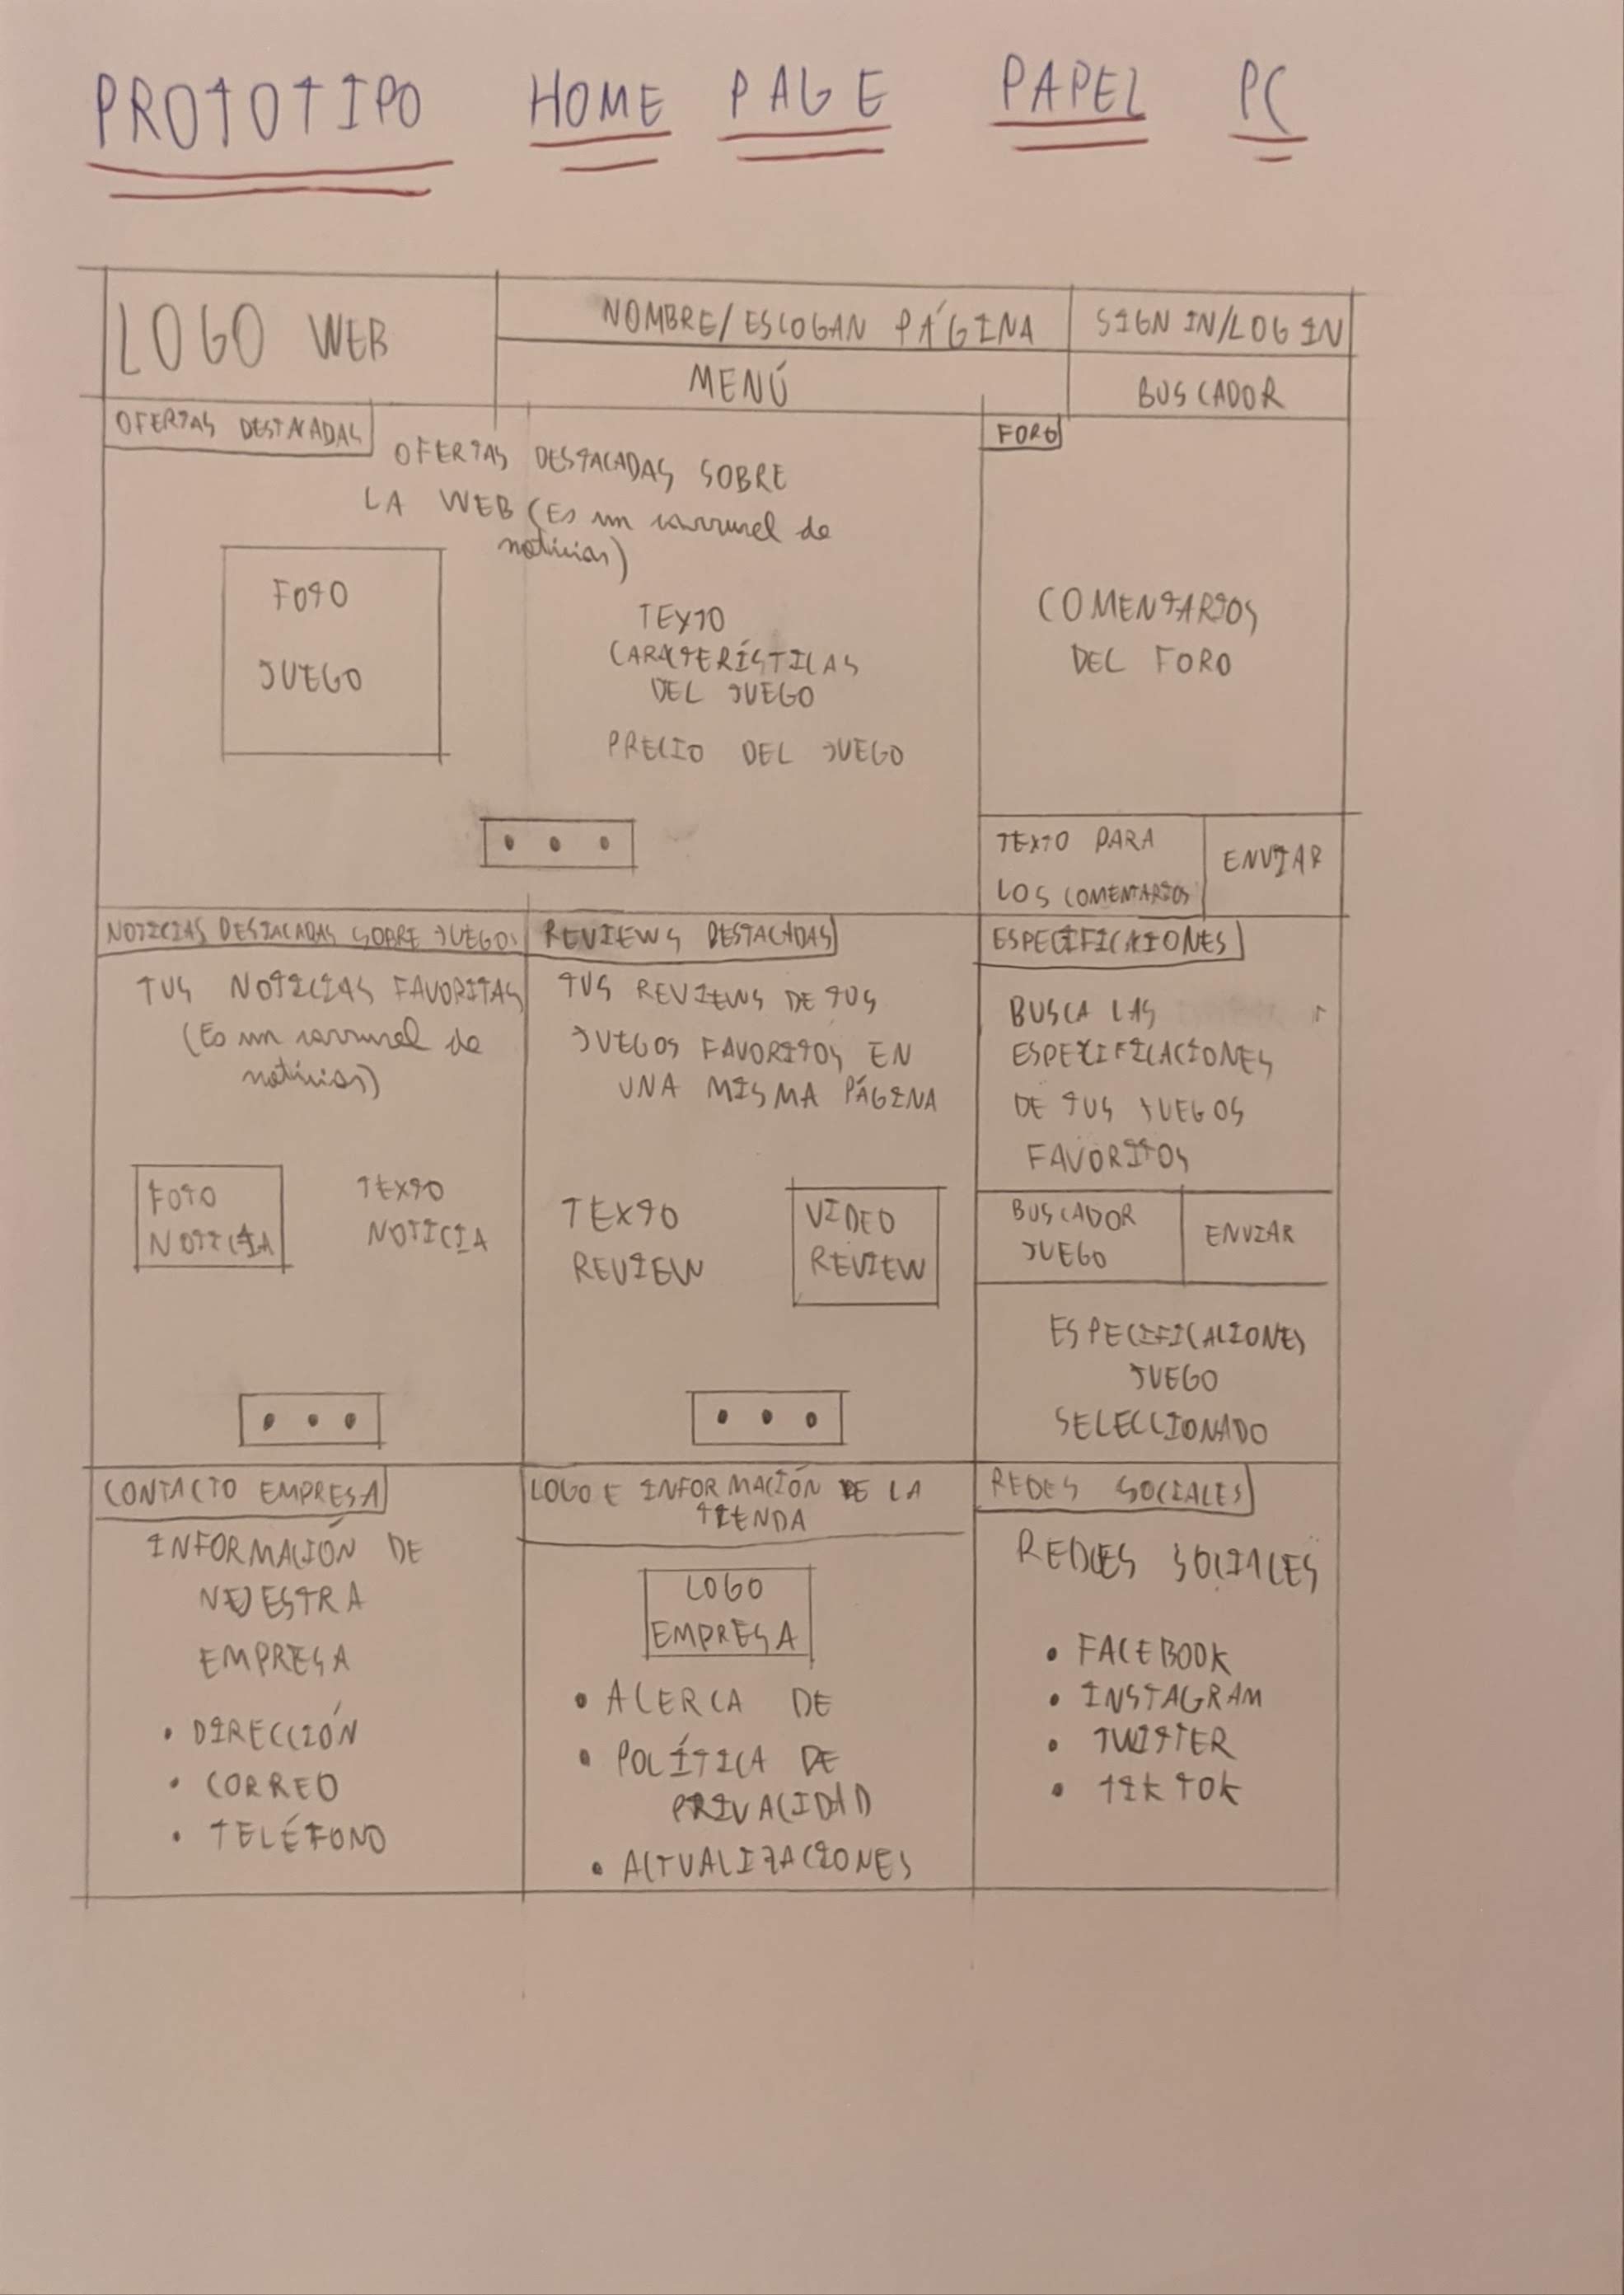 PROTOTIPO HOME PAGE PAPEL PC
LOGO WEB
NOMBRE/ESCOGAN PÁGINA
SIGN IN/LOG IN
MENÚ
BUSCADOR
OFERTAS DESTACADAS
OFERTAS DESTACADAS SOBRE
LA WEB (Es un carrusel de
noticias)
FOTO
JUEGO
TEXTO
CARACTERÍSTICAS
DEL JUEGO
PRECIO DEL JUEGO
FORO
COMENTARIOS
DEL FORO
TEXTO PARA
LOS COMENTARIOS
ENVIAR
NOTICIAS DESTACADAS SOBRE JUEGOS
TUS NOTICIAS FAVORITAS
(Es un carrusel de
noticias)
FOTO
NOTICIA
TEXTO
NOTICIA
REVIEWS DESTACADAS
TUS REVIEWS DE TUS
JUEGOS FAVORITOS EN
UNA MISMA PÁGINA
TEXTO
REVIEW
VIDEO
REVIEW
ESPECIFICACIONES
BUSCA LAS
ESPECIFICACIONES
DE TUS JUEGOS
FAVORITOS
BUSCADOR
JUEGO
ENVIAR
ESPECIFICACIONES
JUEGO
SELECCIONADO
CONTACTO EMPRESA
INFORMACIÓN DE
NUESTRA
EMPRESA
• DIRECCIÓN
• CORREO
• TELÉFONO
LOGO E INFORMACIÓN DE LA
TIENDA
LOGO
EMPRESA
• ACERCA DE
• POLÍTICA DE
PRIVACIDAD
• ACTUALIZACIONES
REDES SOCIALES
REDES SOCIALES
• FACEBOOK
• INSTAGRAM
• TWITTER
• TIKTOK